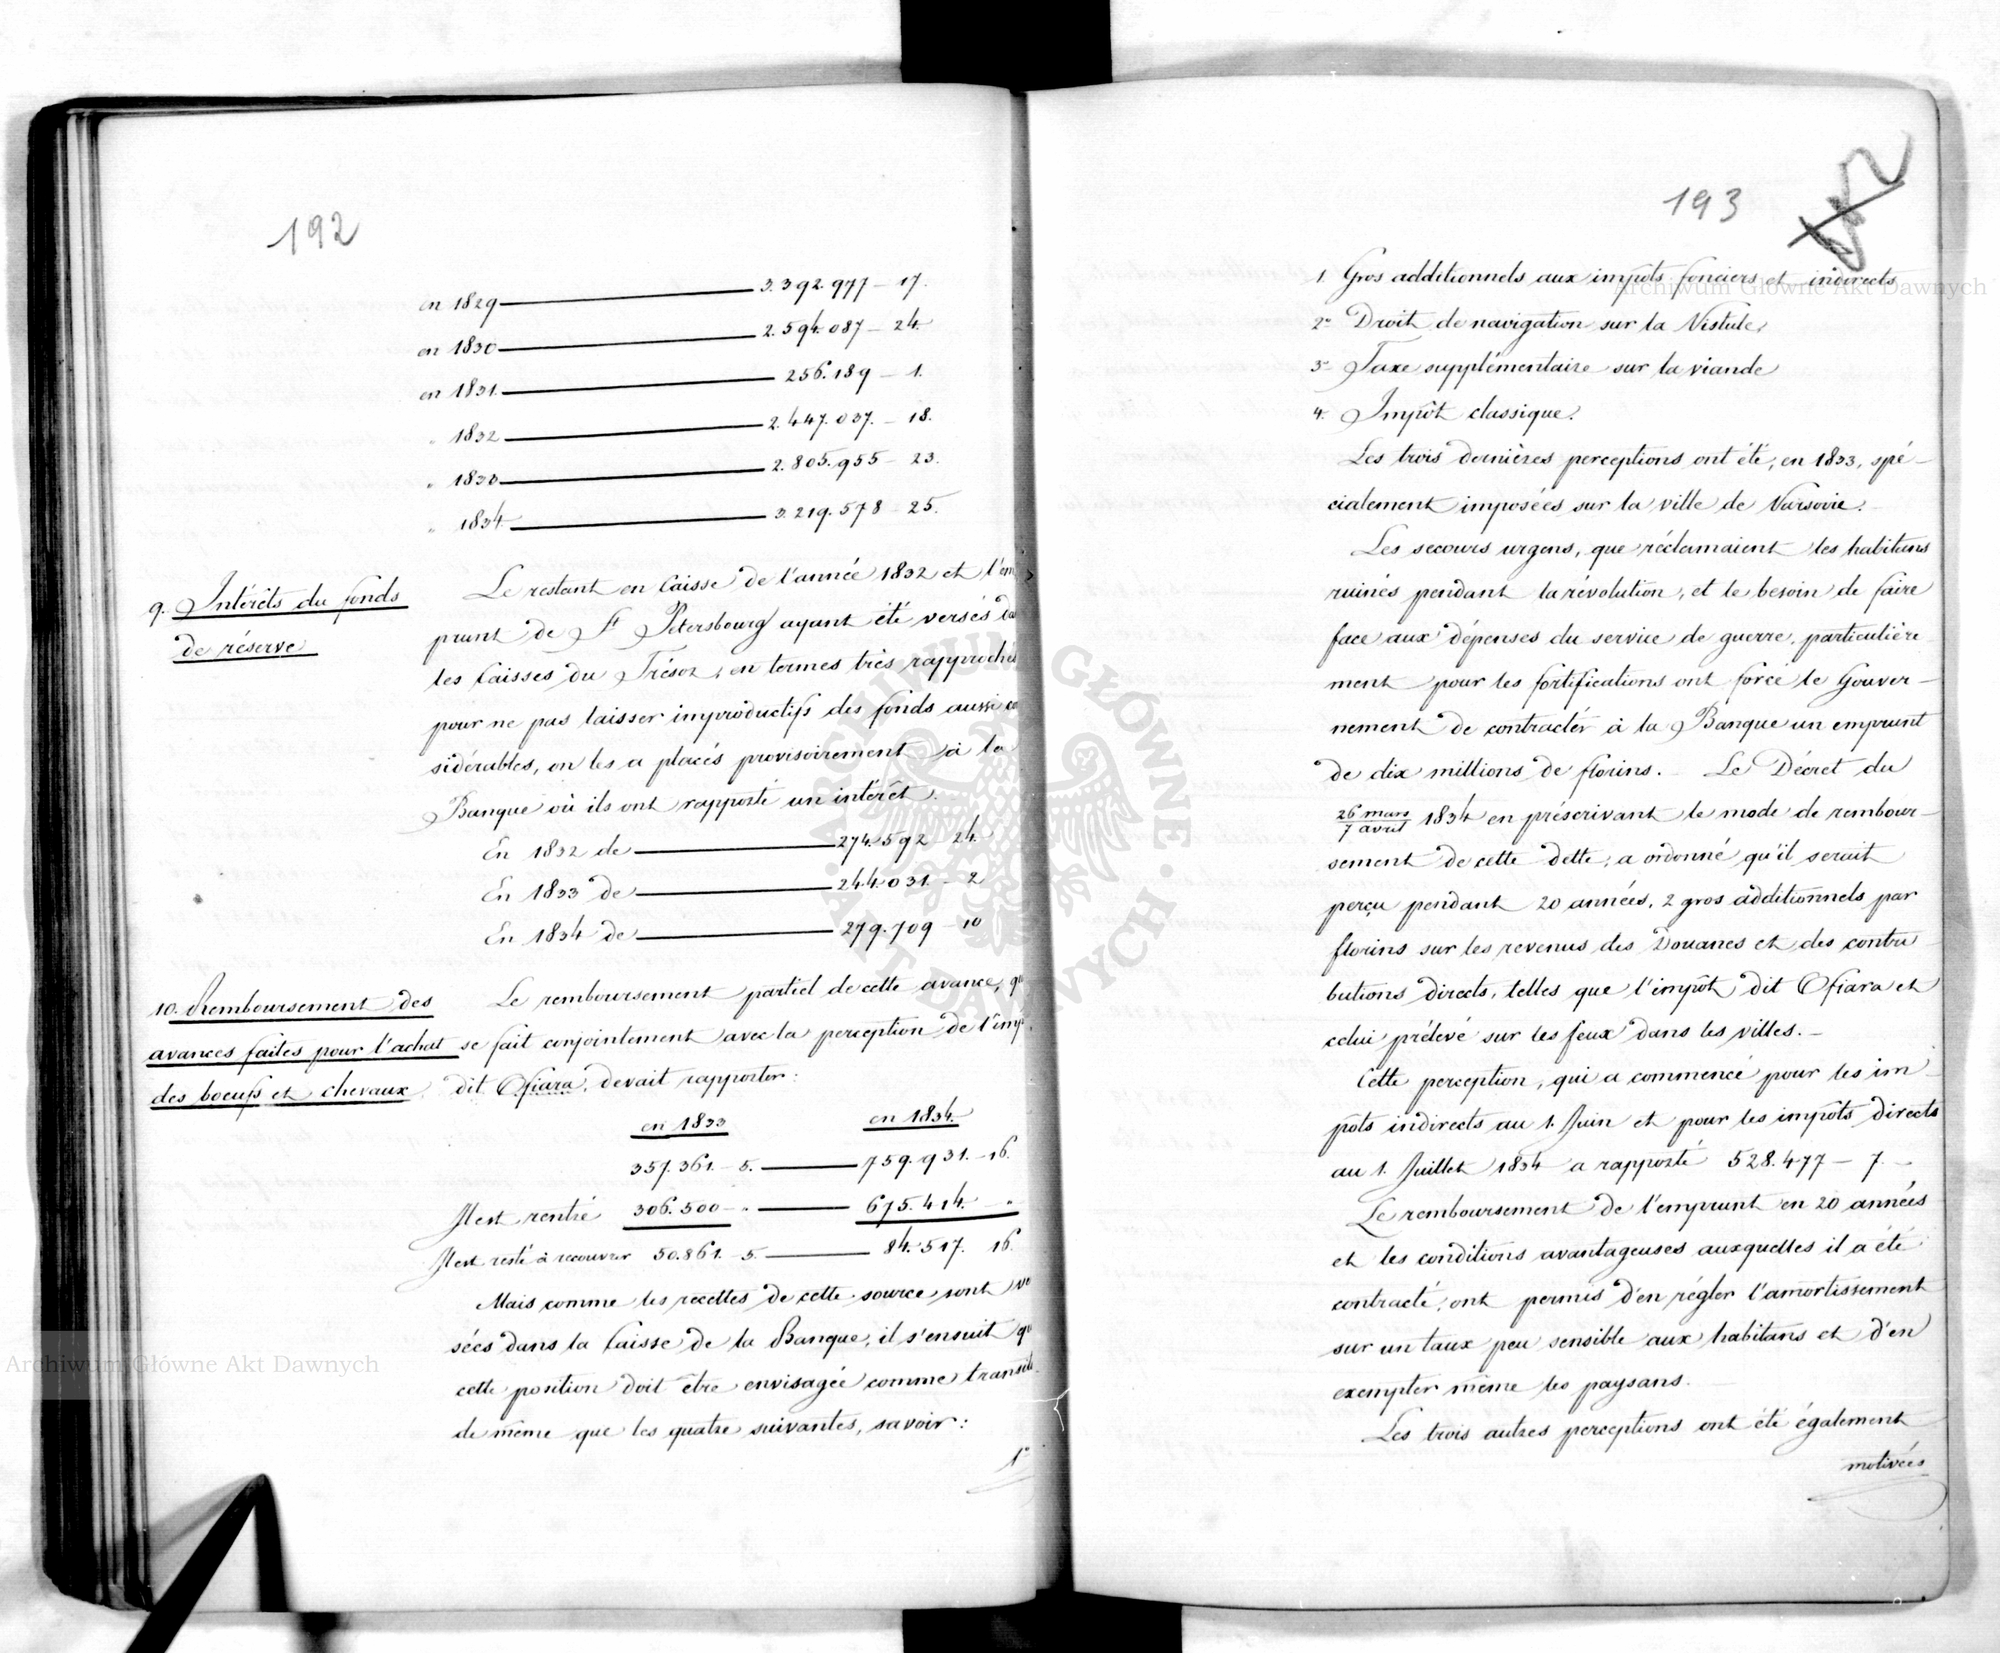 192
en 1829 — 3.392.977 — 17.
en 1830 — 2.594.087 — 24.
en 1831. — 256.189 — 1.
" 1832 — 2.447.037. — 18.
" 1833 — 2.805.955 — 23.
" 1834 — 3.219.578 — 25.
9. Intérêts du fonds
de réserve
Le restant en Caisse de l'année 1832 et l'em
prunt de St Pétersbourg ayant été versés da
les Caisses du Trésor, en termes très rapprochés
pour ne pas laisser improductifs des fonds aussi co
sidérables, on les a placés provisoirement à la
Banque où ils ont rapporté un intérêt.
En 1832 de — 274.592 — 24.
En 1833 de — 244.031. — 2
En 1834 de — 279.709 — 10
10. Remboursement des
avances faites pour l'achat
des boeufs et chevaux.
Le remboursement partiel de cette avance, qu
se fait conjointement avec la perception de l'imp
dit Ofiara, devait rapporter:
en 1833 en 1834.
357.361. — 5. — 759.931. — 16.
Il est rentré 306.500 — " — 675.414. — "
Il est resté à recouvrer 50.861. — 5. — 84.517. 16.
Mais comme les recettes de cette source sont ve
sées dans la Caisse de la Banque, il s'ensuit qu
cette position doit être envisagée comme transit
de même que les quatre suivantes, savoir:
1°
193
1. Gros additionnels aux impôts fonciers et indirects
2° Droit de navigation sur la Vistule,
3° Taxe supplémentaire sur la viande
4. Impôt classique.
Les trois dernières perceptions ont été, en 1833, spé-
cialement imposées sur la ville de Varsovie.
Les secours urgens, que réclamaient les habitans
ruinés pendant la révolution, et le besoin de faire
face aux dépenses du service de guerre, particulière
ment pour les fortifications ont forcé le Gouver-
nement de contracter à la Banque un emprunt
de dix millions de florins. — Le Décret du
26 mars / 7 avril 1834 en préscrivant le mode de rembour-
sement de cette dette, a ordonné qu'il serait
perçu pendant 20 années, 2 gros additionnels par
florins sur les revenus des Douanes et des contri
butions directs, telles que l'impôt, dit Ofiara et
celui prélevé sur les feux dans les villes. —
Cette perception, qui a commencé pour les im-
pôts indirects au 1. Juin et pour les impôts directs
au 1. Juillet 1834 a rapporté 528.477 — 7. —
Le remboursement de l'emprunt en 20 années
et les conditions avantageuses auxquelles il a été
contracté, ont permis d'en régler l'amortissement
sur un taux peu sensible aux habitans et d'en
exempter même les paysans. —
Les trois autres perceptions ont été également
motivées
Archiwum Główne Akt Dawnych
Archiwum Główne Akt Dawnych
ARCHIWUM GŁÓWNE AKT DAWNYCH